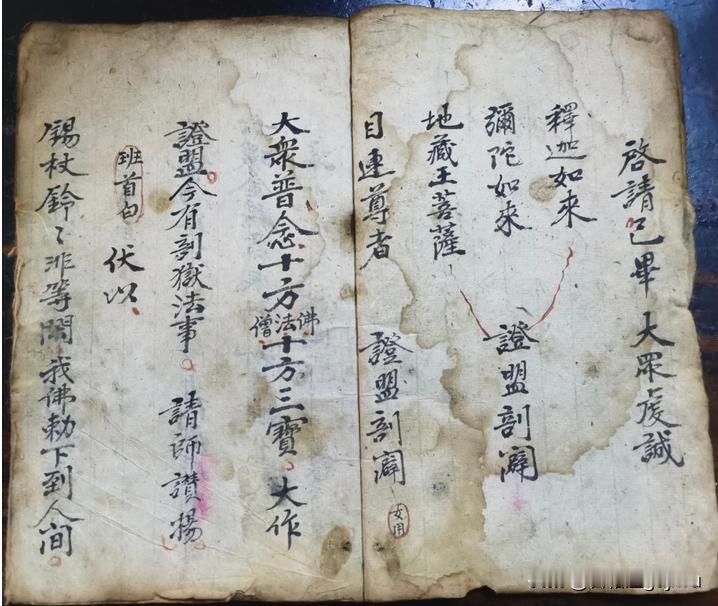 啓請已畢大眾虔誠
釋迦如來
彌陀如來 證盟剖
地藏王菩薩
目連尊者 證盟剖 女用
大衆普念十方佛法僧十方三寶。大作
證盟今有剖獄法事。請師讃揚。
班首白 伏以
錫杖鈴〻非等閑。我佛勅下到人间。